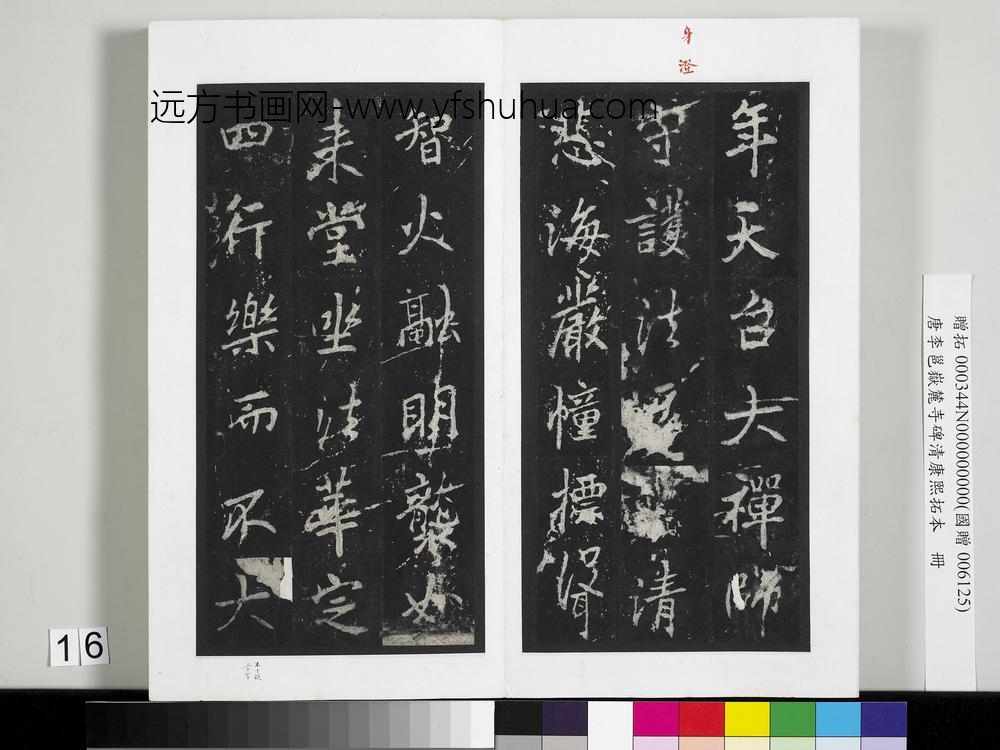 身
澄
年天台大禪師
守護法
清
悲海嚴幢摽習
智火融明襲如
来堂坐法華定
四行樂而不大
远方书画网-www.yfshuhua.com
贈拓 000344N000000000(國贈 006125)
唐李邕嶽麓寺碑清康熙拓本 冊
16